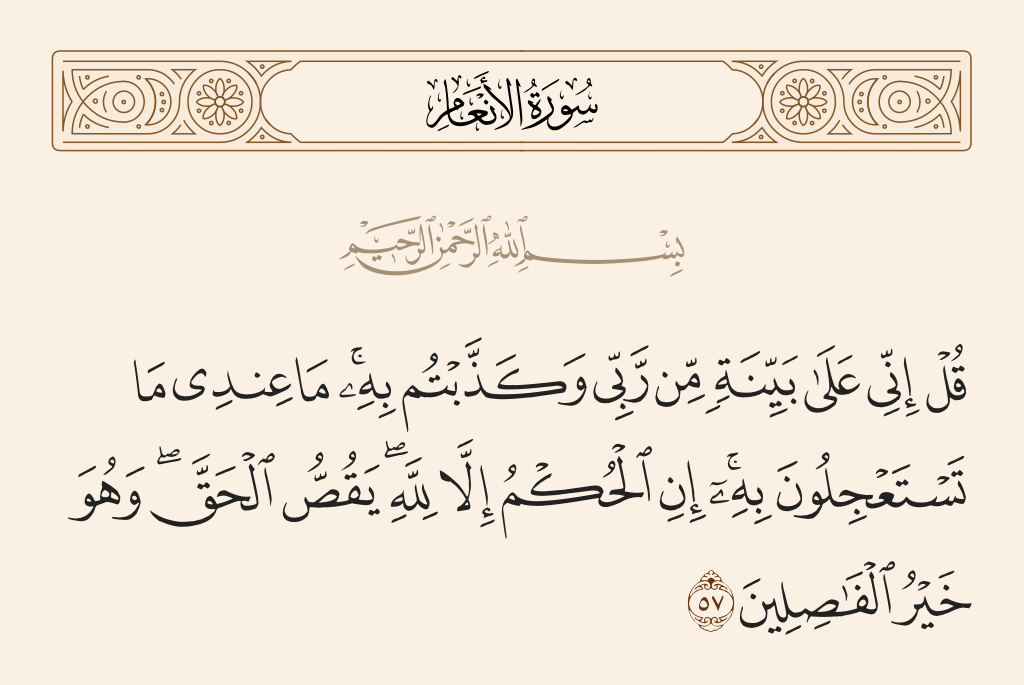 سُورَةُ الأَنْعَامِ
بِسْمِ ٱللَّهِ ٱلرَّحْمَٰنِ ٱلرَّحِيمِ
قُلْ إِنِّى عَلَىٰ بَيِّنَةٍ مِّن رَّبِّى وَكَذَّبْتُم بِهِۦ ۚ مَا عِندِى مَا
تَسْتَعْجِلُونَ بِهِۦٓ ۚ إِنِ ٱلْحُكْمُ إِلَّا لِلَّهِ ۖ يَقُصُّ ٱلْحَقَّ ۖ وَهُوَ
خَيْرُ ٱلْفَـٰصِلِينَ ٥٧